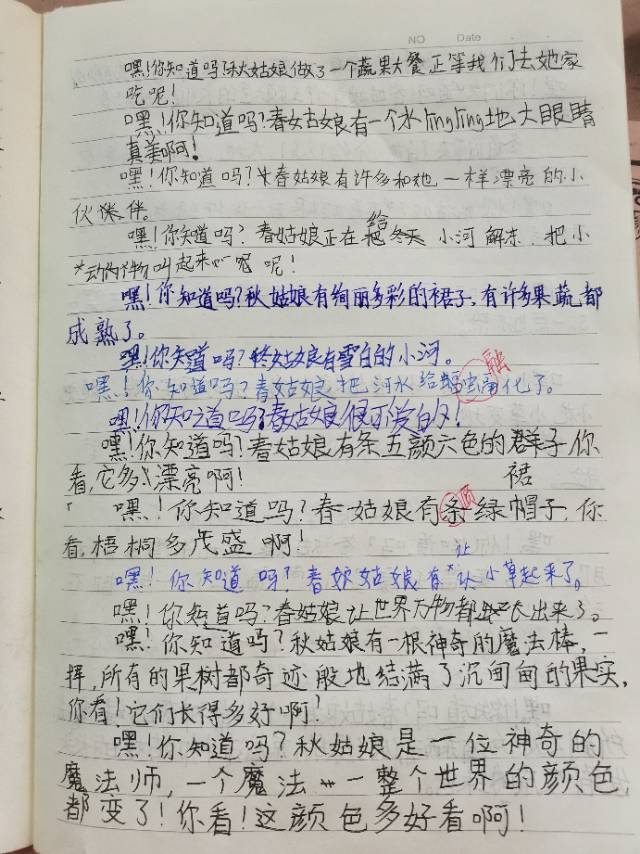 NO Date
嘿!你知道吗?秋姑娘做了一个蔬果大餐正等我们去她家
吃呢!
嘿!你知道吗?春姑娘有一个水lingling地大眼睛
真美啊!
嘿!你知道吗?春姑娘有许多和她一样漂亮的小
伙伴。
嘿!你知道吗?春姑娘正在给小河解冻,把小
动物叫起来呢!
嘿!你知道吗?秋姑娘有绚丽多彩的裙子,有许多果蔬都
成熟了。
嘿!你知道吗?姑娘有雪白的小河。
嘿!你知道吗?春姑娘把河水给融化了。
嘿!你知道吗?春姑娘很可爱的!
嘿!你知道吗?春姑娘有条五颜六色的群子你
看,它多漂亮啊!
裙
嘿!你知道吗?春姑娘有条顶绿帽子,你
看,梧桐多茂盛啊!
嘿!你知道吗?春姑娘有让小草起来了。
嘿!你知道吗?春姑娘让世界万物都长出来了。
嘿!你知道吗?秋姑娘有一根神奇的魔法棒,一
挥,所有的果树都奇迹般地结满了沉甸甸的果实,
你看!它们长得多好啊?
嘿!你知道吗?秋姑娘是一位神奇的
魔法师,一个魔法……整个世界的颜色,
都变了!你看!这颜色多好看啊!